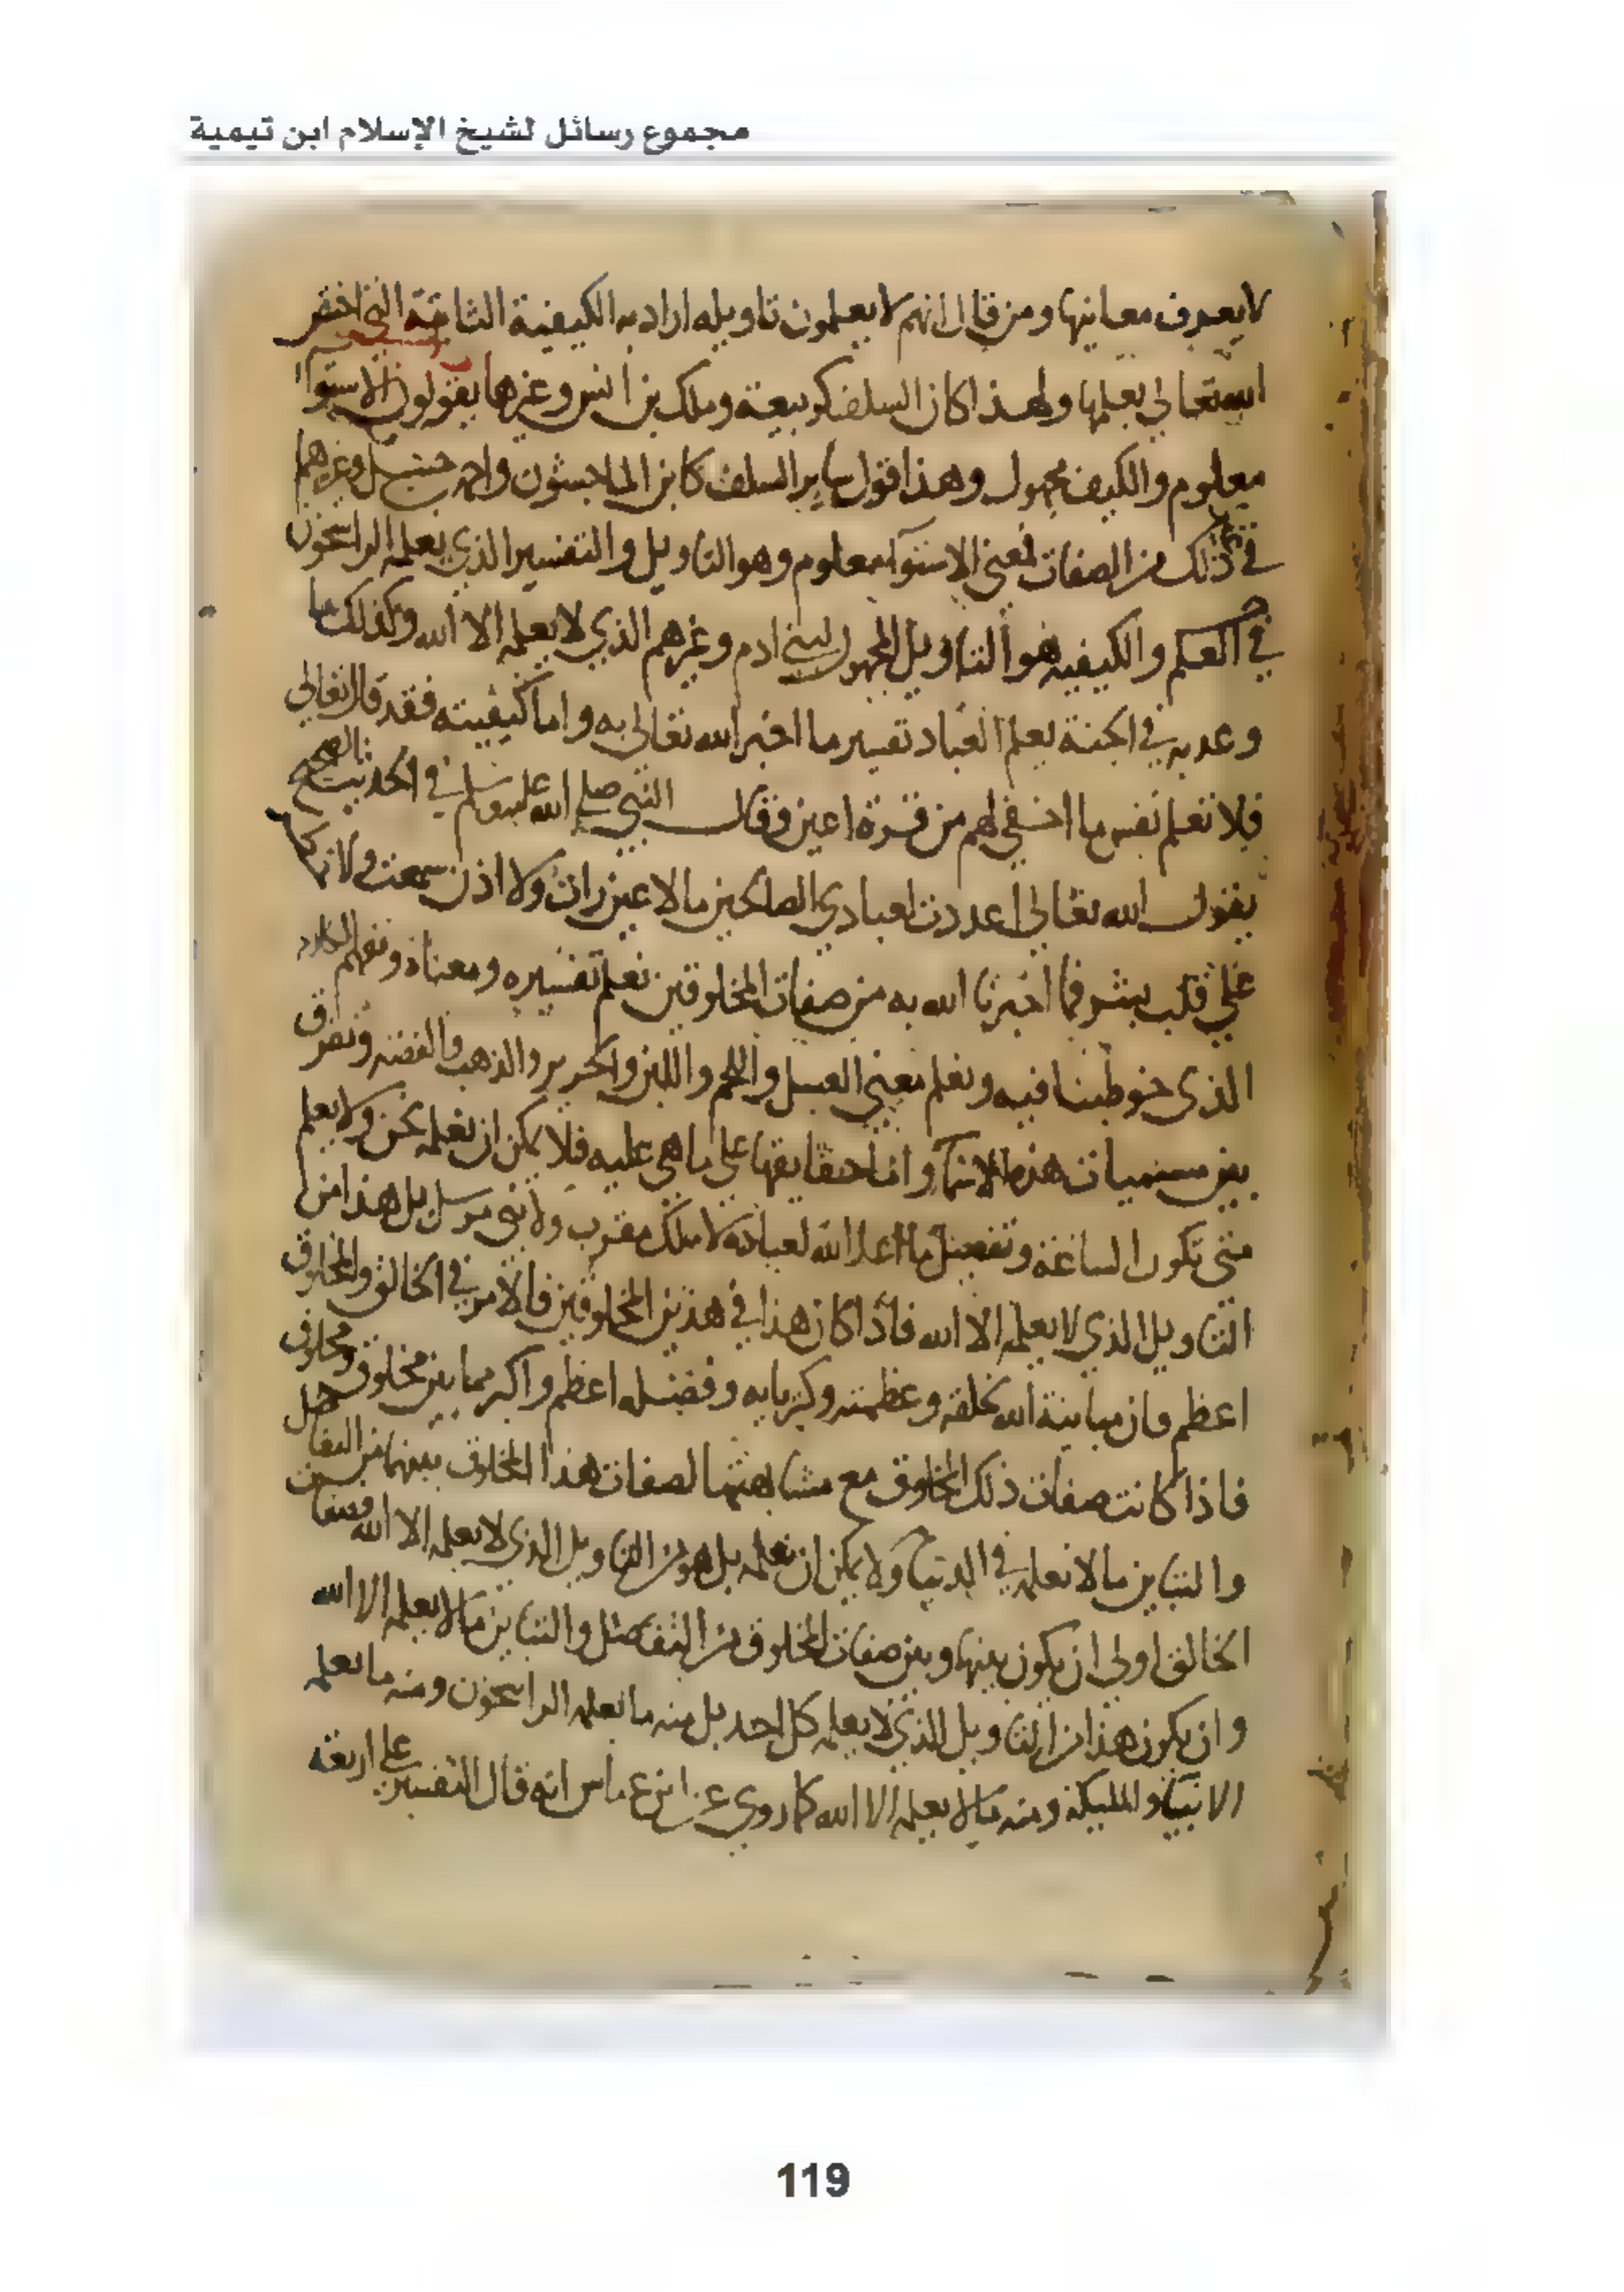 مجموع رسائل لشيخ الإسلام ابن تيمية
لا يعرف معانيها ومن قال انهم لا يعلمون تاويله اراد به الكيفية الثابتة التي اختص
الله تعالى بعلمها ولهذا كان السلف كربيعة وملك بن انس وغيرهما يقولون الاستوا
معلوم والكيف مجهول وهذا قول ساير السلف كابن الماجشون واحمد بن حنبل وغيرهم
في غير ذلك من الصفات فمعنى الاستوآ معلوم وهو التاويل والتفسير الذي يعلمه الراسخون
في العلم والكيفيه هو التاويل المجهول لبني ادم وغيرهم الذي لا يعلمه الا الله وكذلك ما
وعد به في الجنة يعلم العباد تفسير ما اخبر الله تعالى به واما كيفيته فقد قال تعالى
فلا تعلم نفس ما اخفي لهم من قرة اعين وقال النبي صلى الله عليه وسلم في الحديث الصحيح
يقول الله تعالى اعددت لعبادي الصالحين ما لا عين رات ولا اذن سمعت ولا
على قلب بشر فما اخبرنا الله به من صفات المخلوقين نعلم تفسيره ومعناه ونفهم الكلام
الذي خوطبنا فيه ونعلم معنى العسل واللحم واللبن والحرير والذهب والفضه ونفرق
بين مسميات هذه الاسمآ واما حقايقها على ما هي عليه فلا يمكن ان نعلمه نحن ولا يعلم
متى تكون الساعة وتفصيل ما اعد الله لعباده لا ملك مقرب ولا نبي مرسل بل هذا من
التاويل الذي لا يعلمه الا الله فاذا كان هذا في هذين المخلوقين فالامر في الخالق والمخلوق
اعظم فان مباينة الله لخلقه وعظمته وكبريايه وفضله اعظم واكبر مما بين مخلوق ومخلوق
فاذا كانت صفات ذلك المخلوق مع مشابهتها لصفات هذا المخلوق بينهما من التفاضل
والتباين ما لا نعلمه في الدنيا ولا يمكن ان نعلمه بل هو من التاويل الذي لا يعلمه الا الله فصفات
الخالق اولى ان يكون بينها وبين صفات المخلوق من التفاضل والتباين ما لا يعلمه الا الله
وان يكون هذا من التاويل الذي لا يعلمه كل احد بل منه ما يعلمه الراسخون ومنه ما يعلمه
الانبيآ والمليكة ومنه ما لا يعلمه الا الله كما روي عن ابن عباس انه قال التفسير على اربعة
119